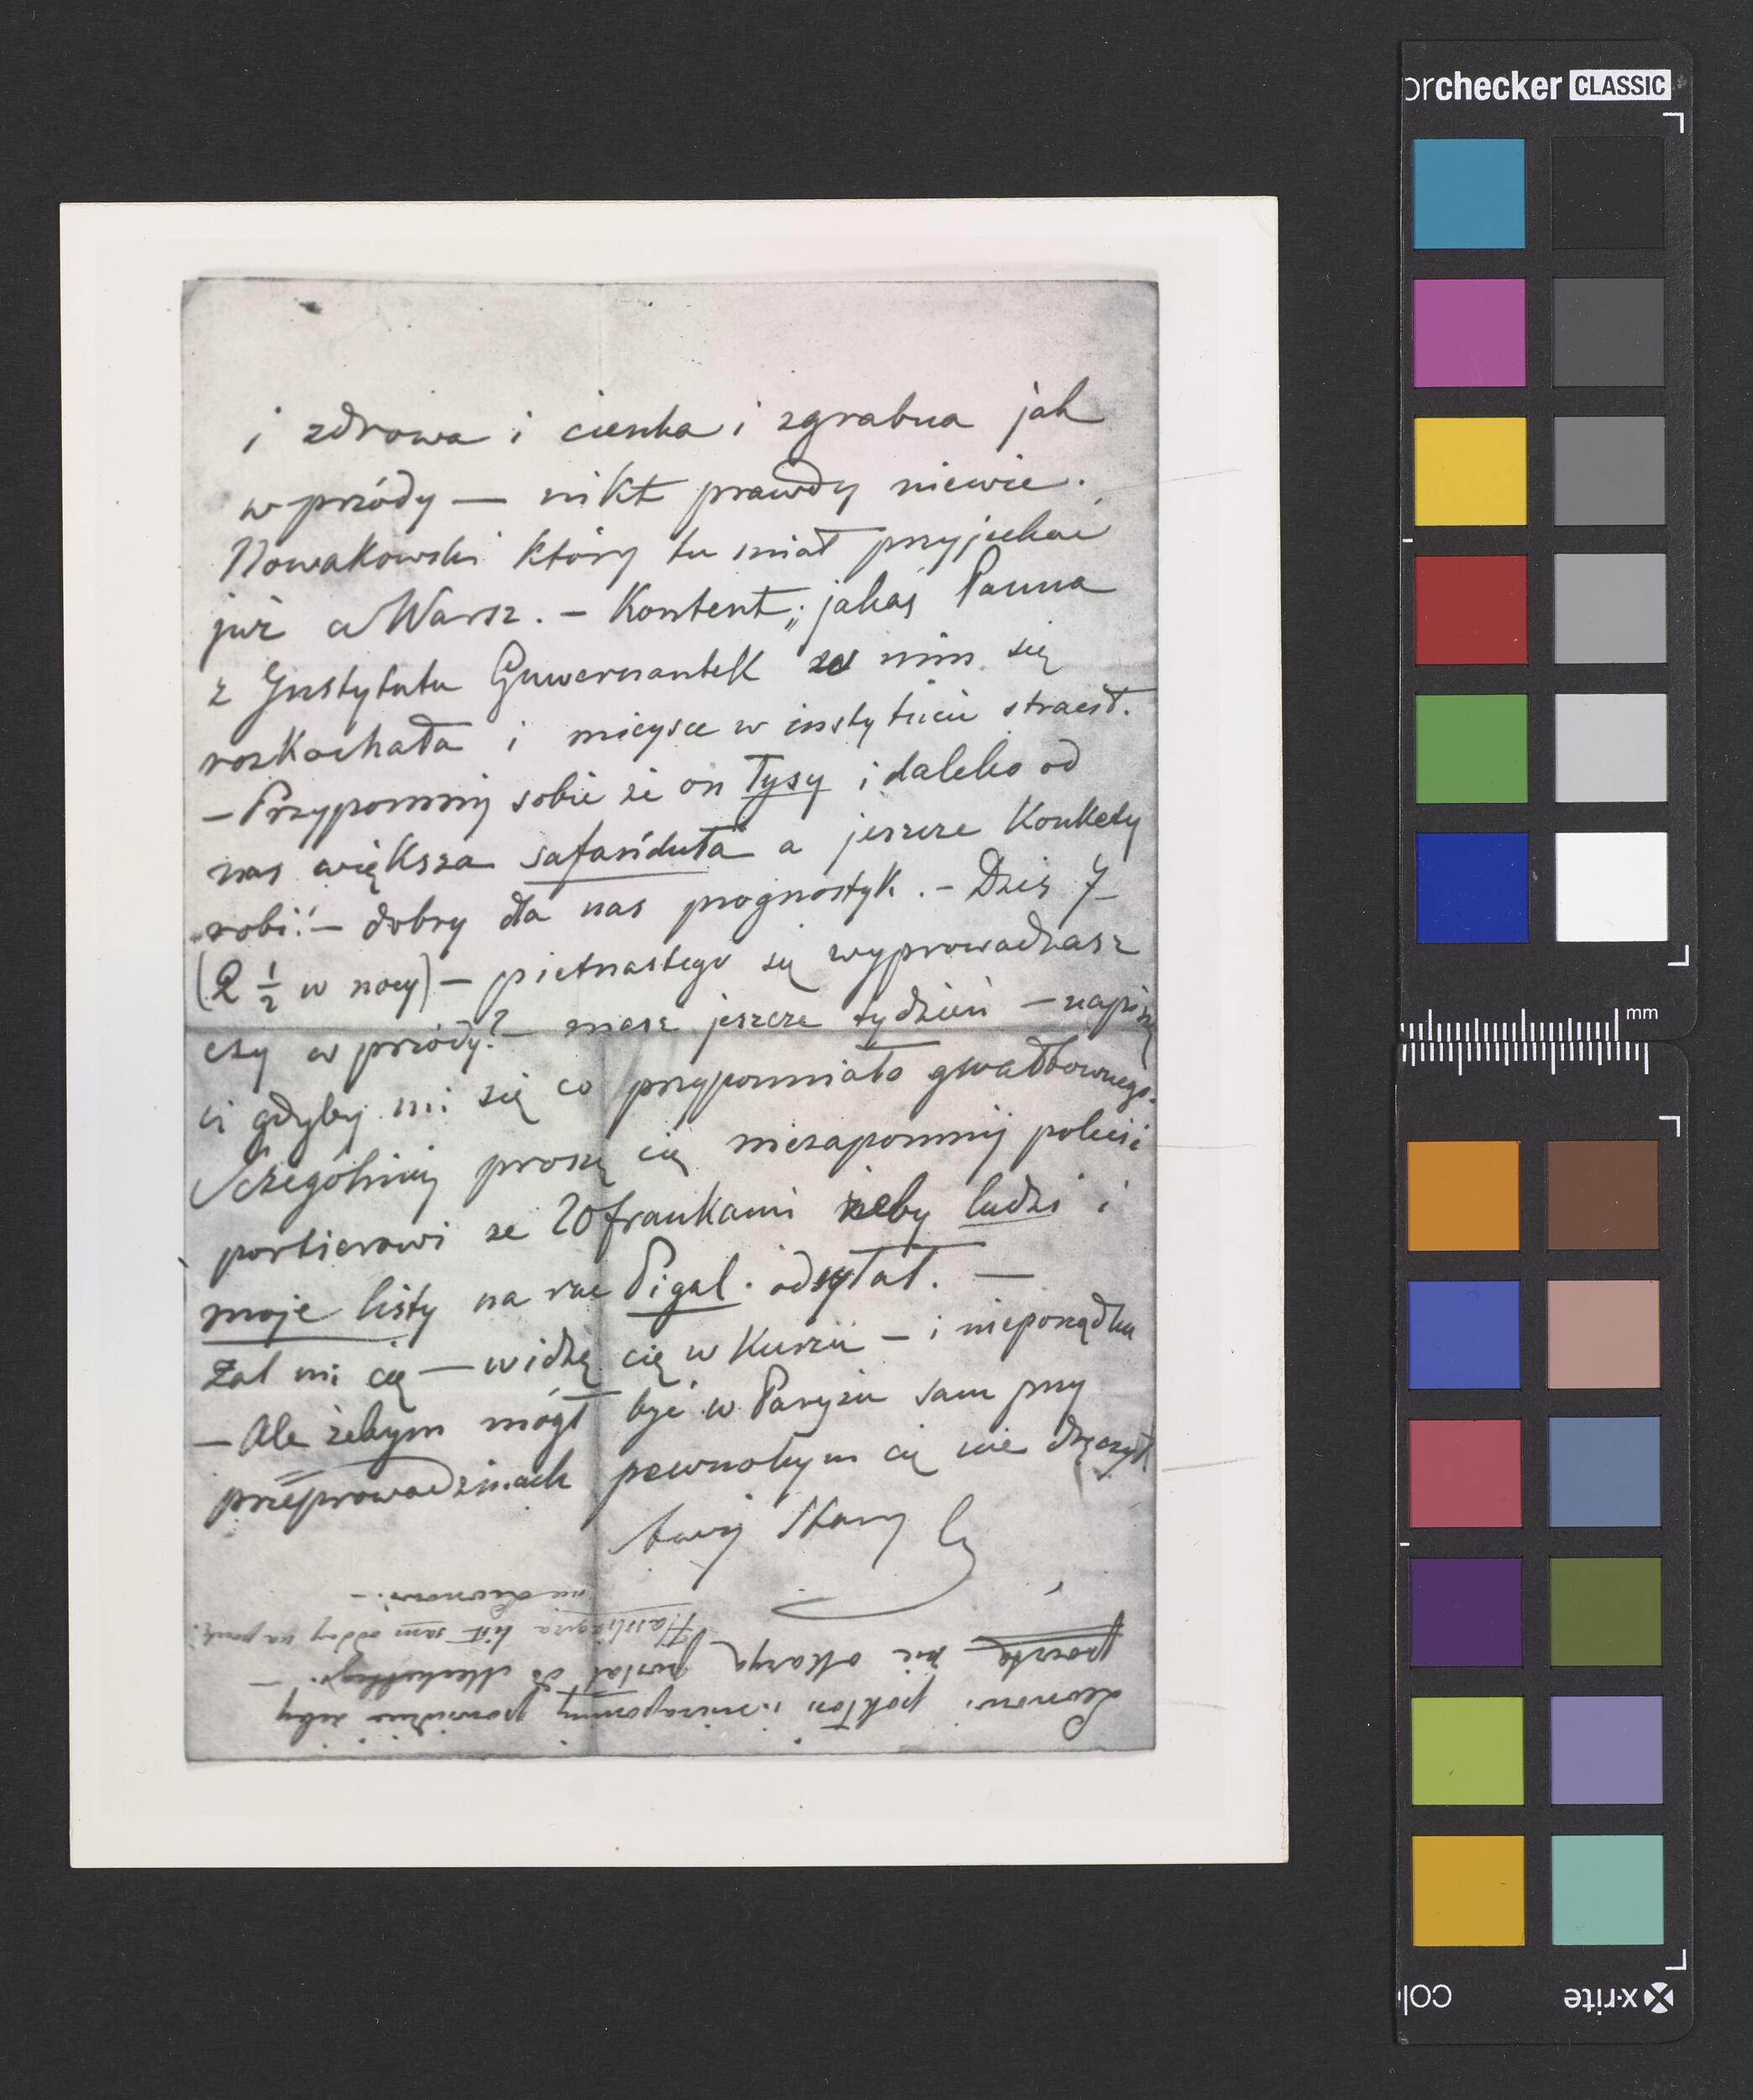 i zdrowa i cienka i zgrabna jak
wprzódy — nikt prawdy niewie.
Nowakowski który tu miał przyjechać
już w Warsz. — Kontent; jakaś Panna
z Instytutu Guwernantek w nim się
rozkochała i miejsce w instytucie stracił.
— Przypomnij sobie że on łysy i daleko od
nas większa safanduła a jeszcze Konkety
robi! — dobry dla nas prognostyk. — Dziś 7
(2 ½ w nocy) — pietnastego się wyprowadzasz
czy wprzódy? — masz jeszcze tydzień — napiszę
ci gdyby mi się co przypomniało gwałtownego.
Szczególniej proszę cię niezapomnij polecić
portierowi ze 20 frankami żeby ludzi i
moje listy na rue Pigal. odsyłał. —
Żal mi cię — widzę cię w Kurzu — i nieporządku
— Ale żebym mógł być w Paryżu sam przy
przeprowadzinach pewnobym cię nie dręczył.
twój Stary
Leonowi pokłon i niezapomnij powiedzieć żeby
pocztą nie okazyą posłał do
list sam oddaj na pocztę.
nie Leonowi. —
orchecker CLASSIC
mm
x-rite
col